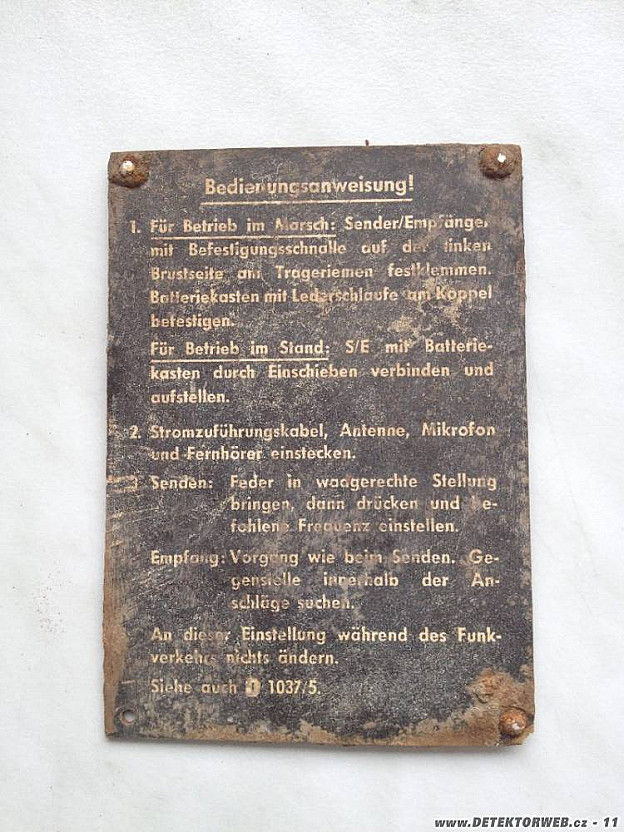 Bedienungsanweisung!
1. Für Betrieb im Marsch: Sender/Empfänger
mit Befestigungsschnalle auf der linken
Brustseite am Trageriemen festklemmen.
Batteriekasten mit Lederschlaufe am Koppel
befestigen.
Für Betrieb im Stand: S/E mit Batterie-
kasten durch Einschieben verbinden und
aufstellen.
2. Stromzuführungskabel, Antenne, Mikrofon
und Fernhörer einstecken.
3 Senden: Feder in waagerechte Stellung
bringen, dann drücken und be-
fohlene Frequenz einstellen.
Empfang: Vorgang wie beim Senden. Ge-
genstelle innerhalb der An-
schläge suchen.
An dieser Einstellung während des Funk-
verkehrs nichts ändern.
Siehe auch D 1037/5.
www.DETEKTORWEB.cz - 11